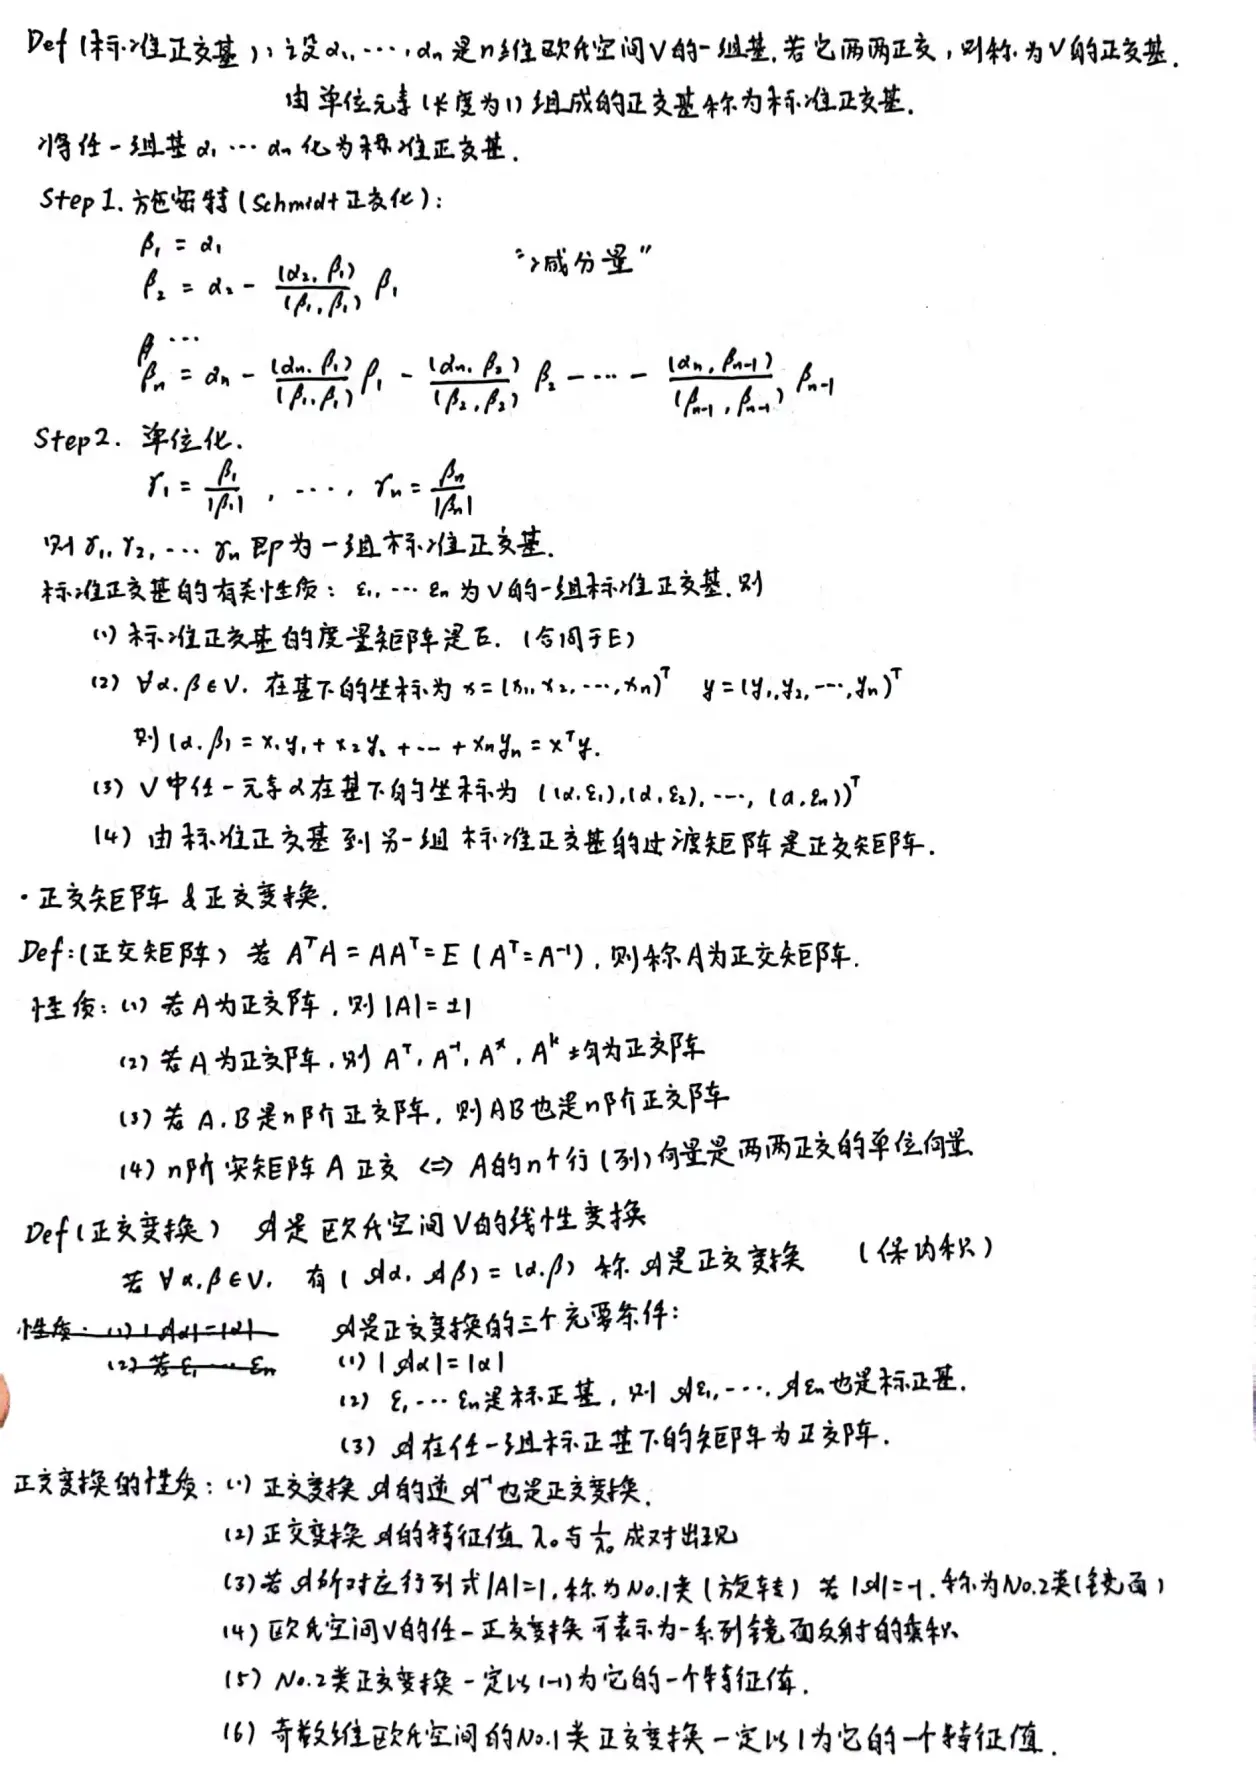 Def (标准正交基): 设α₁, ⋯, αₙ 是n维欧氏空间V的一组基. 若它两两正交, 则称为V的正交基.
由单位元素(长度为1)组成的正交基称为标准正交基.
将任一组基α₁ ⋯ αₙ 化为标准正交基.
Step 1. 施密特(Schmidt正交化):
β₁ = α₁
β₂ = α₂ - (α₂, β₁)/(β₁, β₁) β₁ "减分量"
⋯
βₙ = αₙ - (αₙ, β₁)/(β₁, β₁) β₁ - (αₙ, β₂)/(β₂, β₂) β₂ - ⋯ - (αₙ, βₙ₋₁)/(βₙ₋₁, βₙ₋₁) βₙ₋₁
Step 2. 单位化.
γ₁ = β₁/|β₁| , ⋯, γₙ = βₙ/|βₙ|
则γ₁, γ₂, ⋯ γₙ 即为一组标准正交基.
标准正交基的有关性质: ε₁, ⋯ εₙ 为V的一组标准正交基. 则
(1) 标准正交基的度量矩阵是E. (合同于E)
(2) ∀α, β∈V. 在基下的坐标为 x = (x₁, x₂, ⋯, xₙ)ᵀ y = (y₁, y₂, ⋯, yₙ)ᵀ
则(α, β) = x₁y₁ + x₂y₂ + ⋯ + xₙyₙ = xᵀy.
(3) V中任一元素α在基下的坐标为 ((α, ε₁), (α, ε₂), ⋯, (α, εₙ))ᵀ
(4) 由标准正交基到另一组标准正交基的过渡矩阵是正交矩阵.
· 正交矩阵 & 正交变换.
Def: (正交矩阵) 若 AᵀA = AAᵀ = E (Aᵀ = A⁻¹), 则称A为正交矩阵.
性质: (1) 若A为正交阵, 则|A| = ±1
(2) 若A为正交阵, 则 Aᵀ, A⁻¹, A*, Aᵏ 均为正交阵
(3) 若A, B是n阶正交阵, 则AB也是n阶正交阵
(4) n阶实矩阵A正交 <=> A的n个行(列)向量是两两正交的单位向量
Def (正交变换) 𝒜是欧氏空间V的线性变换
若∀α, β∈V, 有(𝒜α, 𝒜β) = (α, β) 称𝒜是正交变换 (保内积)
性质: (1) |𝒜α| = |α| 𝒜是正交变换的三个充要条件:
(2) 若ε₁ ⋯ εₙ (1) |𝒜α| = |α|
(2) ε₁ ⋯ εₙ是标正基, 则 𝒜ε₁, ⋯, 𝒜εₙ也是标正基.
(3) 𝒜在任一组标正基下的矩阵为正交阵.
正交变换的性质: (1) 正交变换𝒜的逆𝒜⁻¹也是正交变换.
(2) 正交变换𝒜的特征值λ₀与1/λ₀成对出现
(3) 若𝒜所对应行列式|A|=1, 称为No.1类(旋转) 若|𝒜|=-1, 称为No.2类(镜面)
(4) 欧氏空间V的任一正交变换可表示为一系列镜面反射的乘积
(5) No.2类正交变换一定以(-1)为它的一个特征值.
(6) 奇数维欧氏空间的No.1类正交变换一定以1为它的一个特征值.